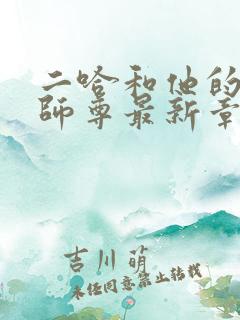 二哈和他的
師尊最新章
吉川萌
未经同意禁止转载